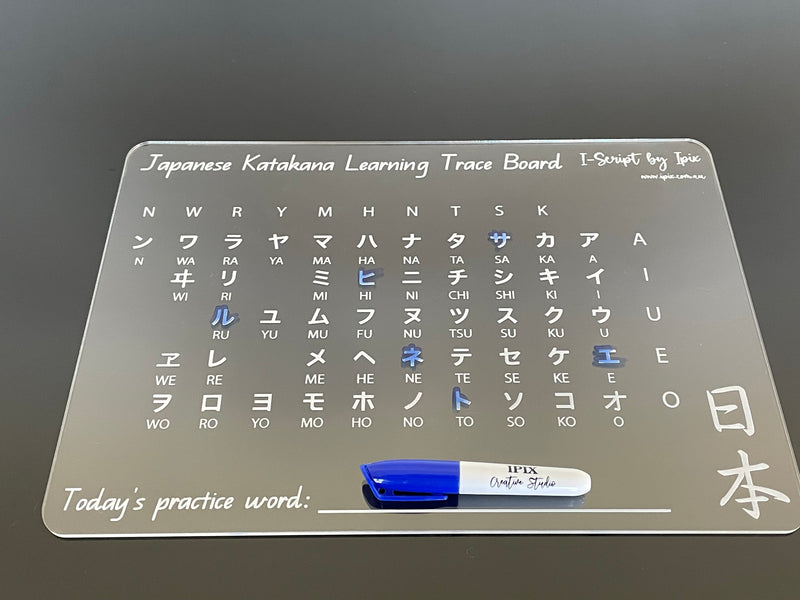 Japanese Katakana Learning Trace Board I-Script by Ipix
www.ipix.com.au
N W R Y M H N T S K
ン ワ ラ ヤ マ ハ ナ タ サ カ ア A
N WA RA YA MA HA NA TA SA KA A
ヰ リ ミ ヒ ニ チ シ キ イ I
WI RI MI HI NI CHI SHI KI I
ル ユ ム フ ヌ ツ ス ク ウ U
RU YU MU FU NU TSU SU KU U
ヱ レ メ ヘ ネ テ セ ケ エ E
WE RE ME HE NE TE SE KE E
ヲ ロ ヨ モ ホ ノ ト ソ コ オ O
WO RO YO MO HO NO TO SO KO O
日本
Today's practice word:
IPIX
Creative Studio